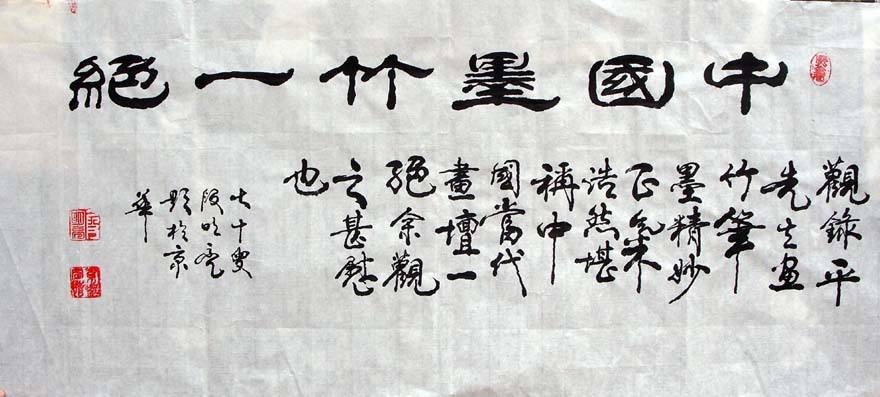 中國墨竹一絕
觀錄平
先生畫
竹筆
墨精妙
正氣
浩然堪
稱中
國當代
畫壇一
絕余觀
之甚慰
也
七十叟
段明亮
題於京
華